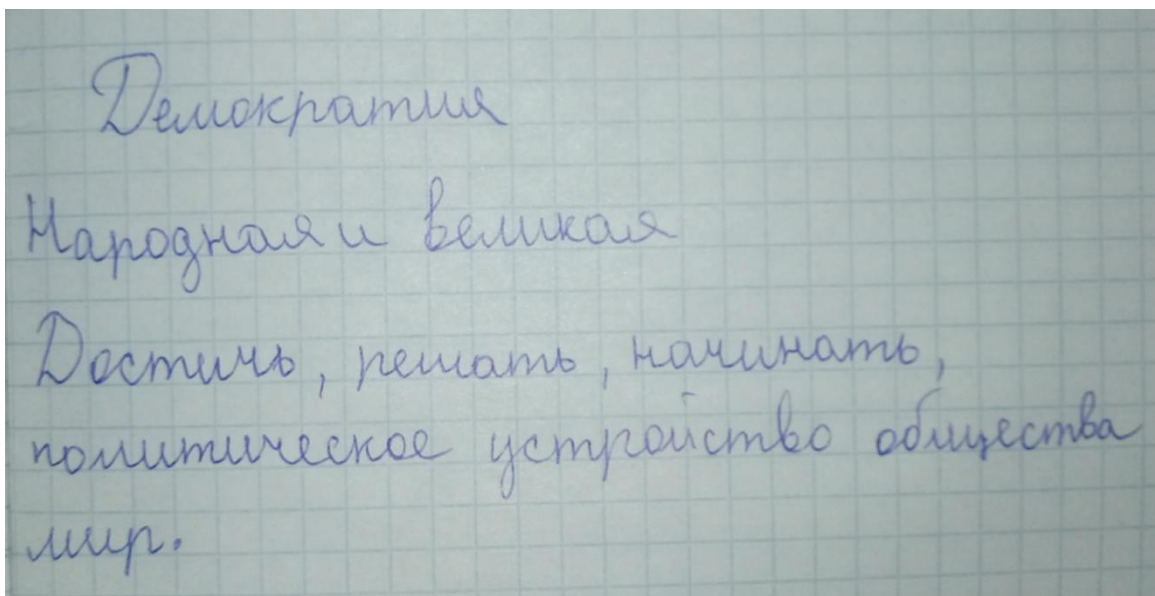 Демократия
Народная и великая
Достичь, решать, начинать,
политическое устройство общества
мир.